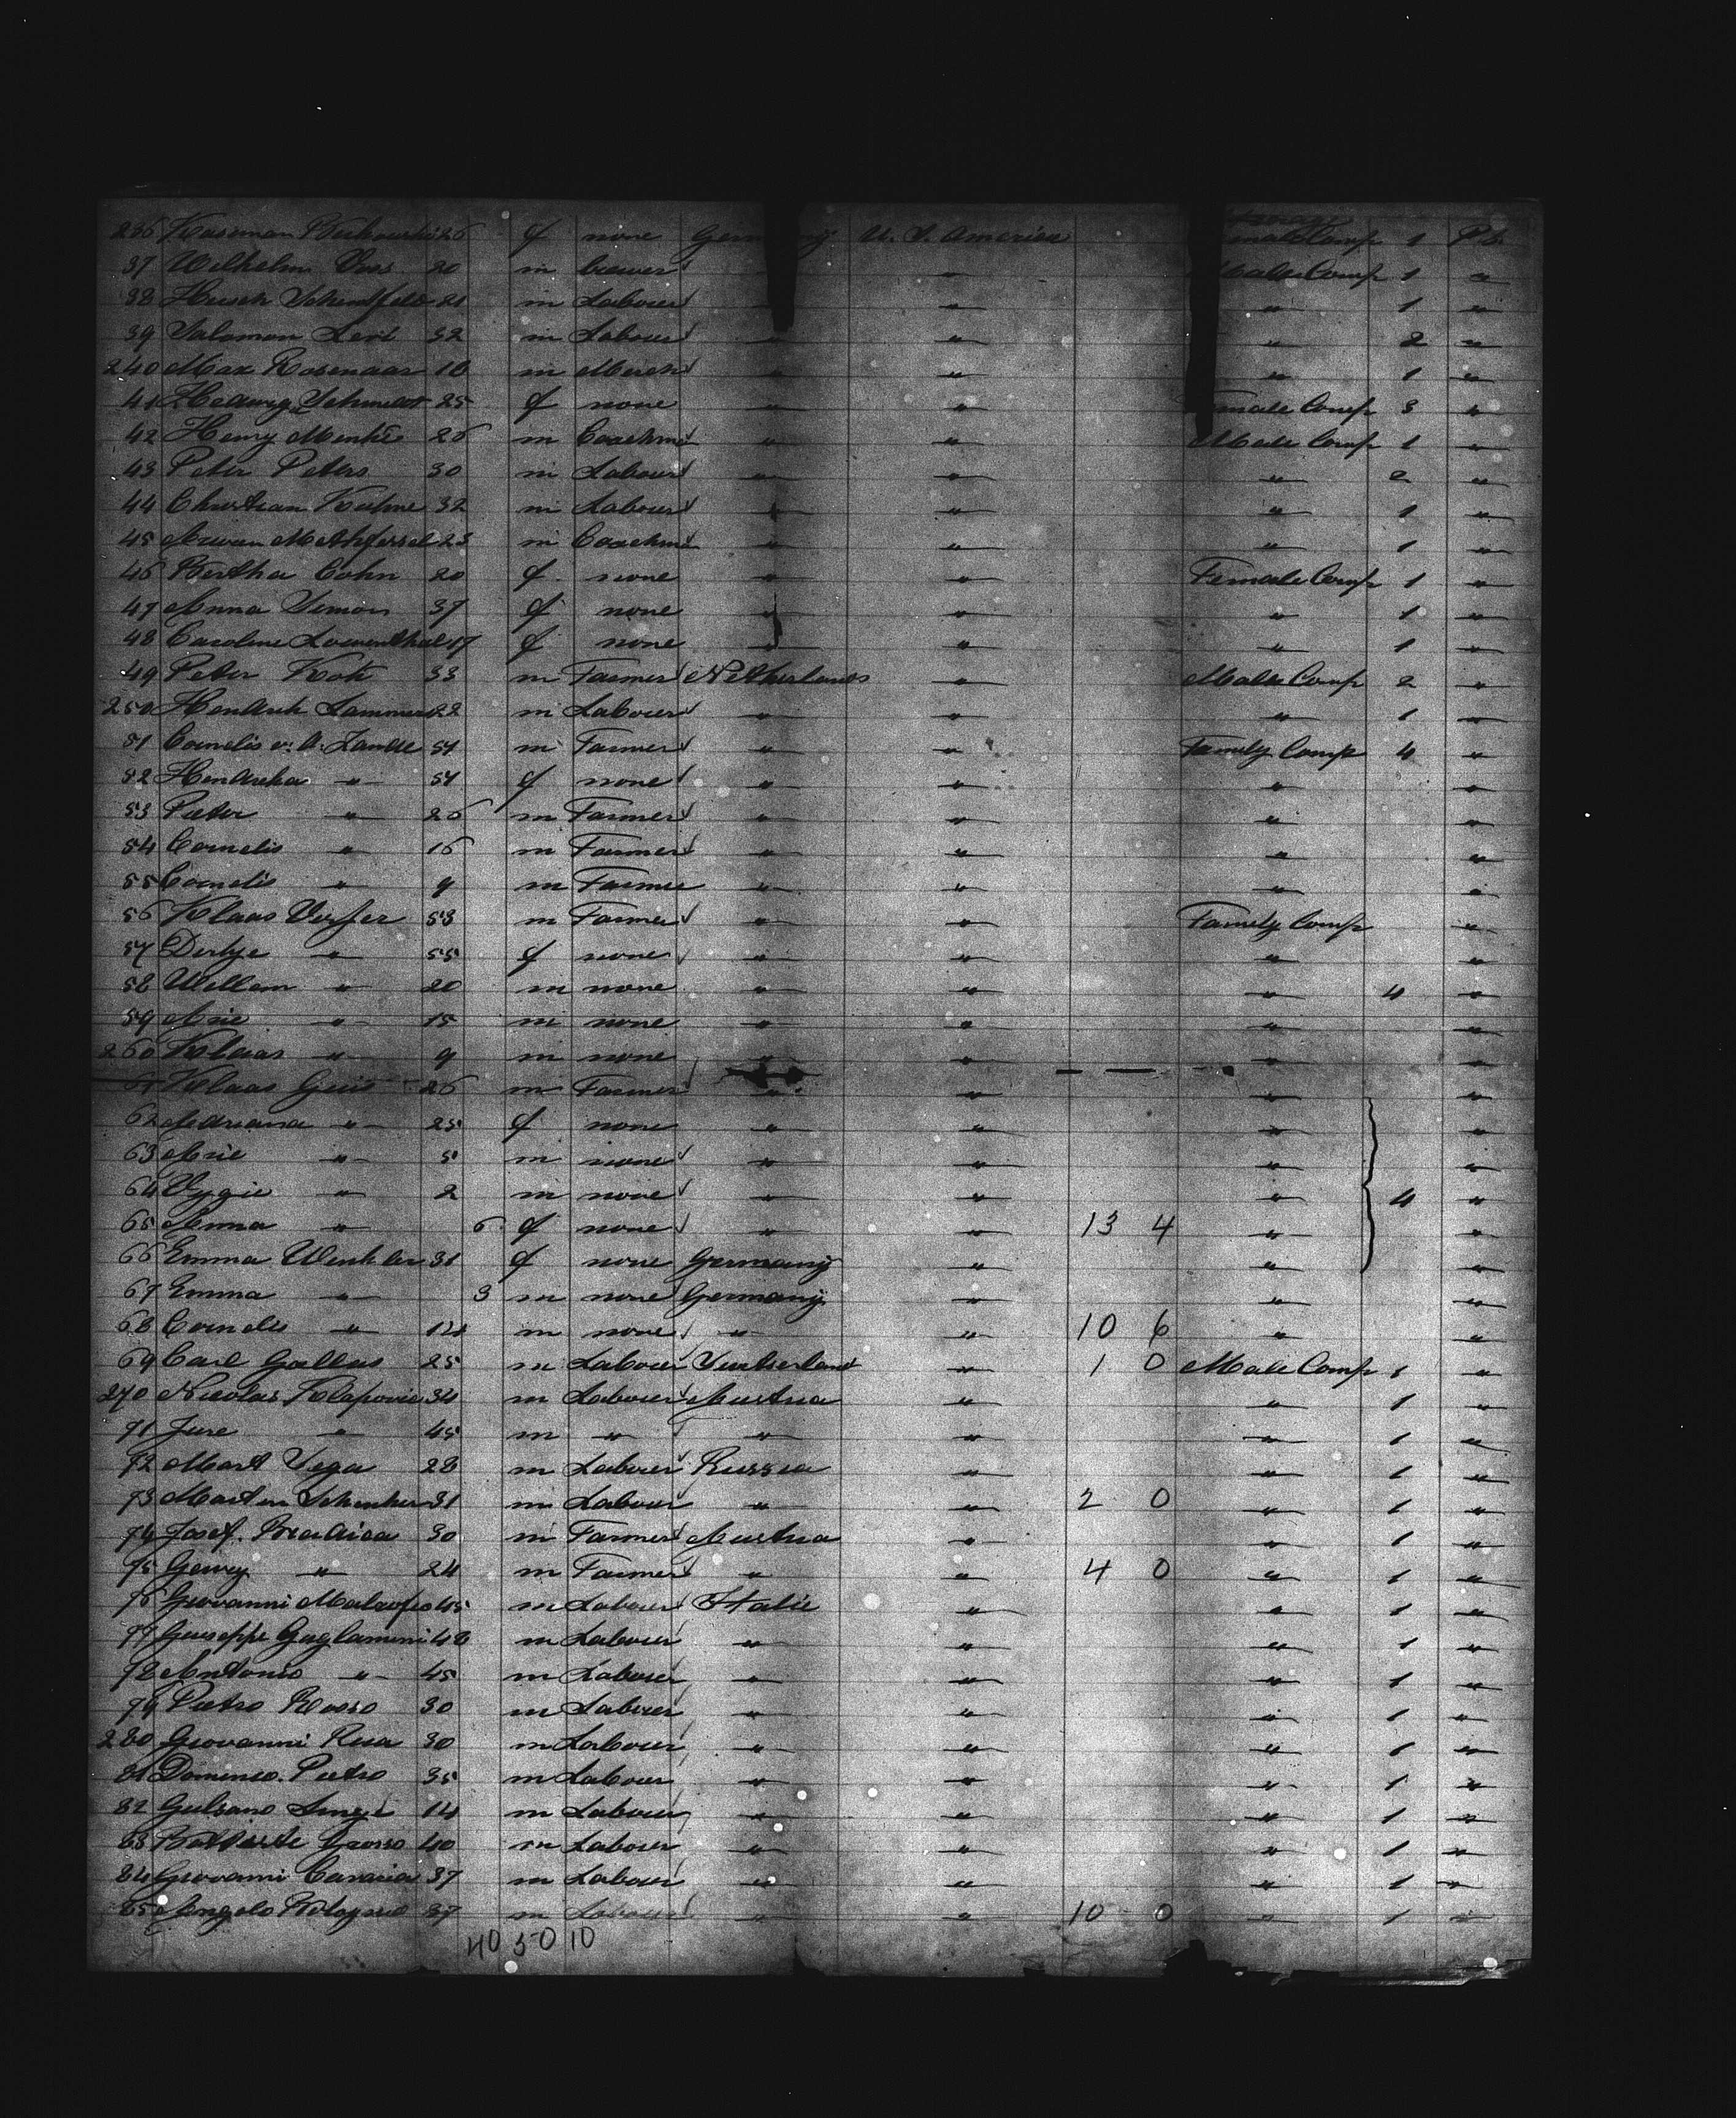 Steerage
236 26 f none Germany U. S. America Female Comp 1 Pt.
37 Wilhelm Vos 20 m brewer " " Male Comp 1 "
38 Hirsch 21 m Labourer " " " 1 "
39 Salomon Levi 32 m Labourer " " " 2 "
240 Max Rosenaar 18 m Merch " " " 1 "
41 Hedwig Schmidt 25 f none " " Female Comp 3 "
42 Henry Menke 26 m Coachma " " Male Comp 1 "
43 Peter Peters 30 m Labourer " " " 2 "
44 Christian Kuhne 32 m Labourer " " " 1 "
45 Methfessel 23 m Coachma " " " 1 "
46 Bertha Cohn 20 f none " " Female Comp 1 "
47 Anna Simon 37 f none " " " 1 "
48 Caroline Loewenthal 17 f none " " " 1 "
49 Peter Kok 33 m Farmer Netherlands " Male Comp 2 "
250 Hendrik Lammers 22 m Labourer " " " 1 "
51 Cornelis v. d. Zande 54 m Farmer " " Family Comp 4 "
52 Hendrika " 54 f none " " " "
53 Pieter " 26 m Farmer " " " "
54 Cornelis " 16 m Farmer " " " "
55 Cornelis " 9 m Farmer " " " "
56 Klaas 53 m Farmer " " Family Comp "
57 Dirkje " 55 f none " " " "
58 Willem " 20 m none " " " 4 "
59 Arie " 15 m none " " " "
260 Klaas " 9 m none " " " "
61 Klaas 26 m Farmer " " " "
62 Adriana " 25 f none " " " "
63 Arie " 5 m none " " " "
64 " 2 m none " " " 4 "
65 Anna " 6 f none " " 13 4 " "
66 Emma Winkler 31 f none Germany " " "
67 Emma " 3 m none Germany " " "
68 Cornelis " 14 m none " " 10 6 " "
69 Carl Gallus 25 m Labourer Switserland " 1 0 Male Comp 1 "
270 Nicolas Klapovic 34 m Labourer Austria " " 1 "
71 Jure " 45 m " " " " 1 "
72 28 m Labourer Russia " " 1 "
73 Martin Schenker 31 m Labour " " 2 0 " 1 "
74 Josef 30 m Farmer Austria " " 1 "
75 " 24 m Farmer " " 4 0 " 1 "
76 Giovanni 45 m Labourer Italie " " 1 "
77 Giuseppe 48 m Labourer " " " 1 "
78 Antonio " 45 m Labourer " " " 1 "
79 Pietro Rosso 30 m Labourer " " " 1 "
280 Giovanni 30 m Labourer " " " 1 "
81 Domenco Pietro 35 m Labour " " " 1 "
82 14 m Labourer " " " 1 "
83 Grosso 40 m Labour " " " 1 "
84 Giovanni 37 m Labour " " " 1 "
85 Angelo 37 m Labourer " " 10 0 " 1 "
40 50 10